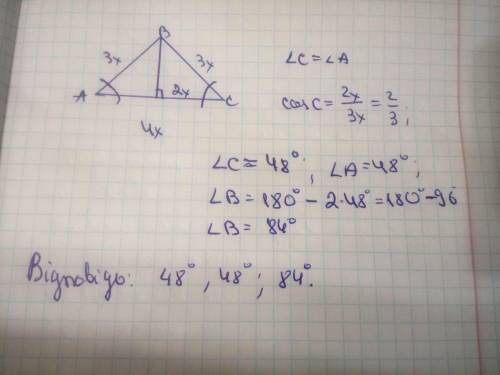 B
3x 3x
A 2x C
4x
∠C = ∠A
cos C = 2x/3x = 2/3;
∠C ≈ 48°; ∠A = 48°;
∠B = 180° − 2·48° = 180° − 96
∠B = 84°
Відповідь: 48°, 48°; 84°.